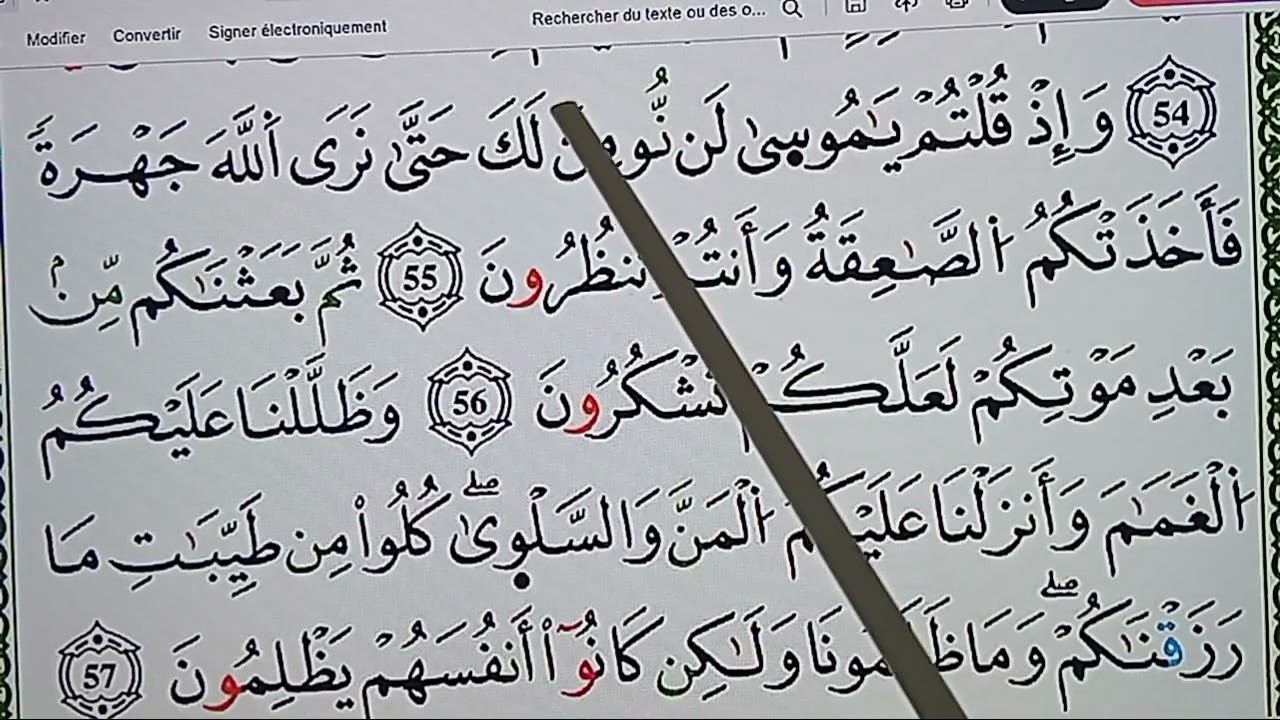 Modifier Convertir Signer électroniquement Rechercher du texte ou des o...
54 وَإِذْ قُلْتُمْ يَٰمُوسىٰ لَن نُّومِنَ لَكَ حَتَّىٰ نَرَى اَللَّهَ جَهْرَةً
فَأَخَذَتْكُمُ اُلصَّٰعِقَةُ وَأَنتُمْ تَنظُرُونَ 55 ثُمَّ بَعَثْنَٰكُم مِّنۢ
بَعْدِ مَوْتِكُمْ لَعَلَّكُمْ تَشْكُرُونَ 56 وَظَلَّلْنَا عَلَيْكُمُ
اُلْغَمَٰمَ وَأَنزَلْنَا عَلَيْكُمُ اُلْمَنَّ وَالسَّلْوىٰ ۖ كُلُواْ مِن طَيِّبَٰتِ مَا
رَزَقْنَٰكُمْ ۖ وَمَا ظَلَمُونَا وَلَٰكِن كَانُوٓاْ أَنفُسَهُمْ يَظْلِمُونَ 57